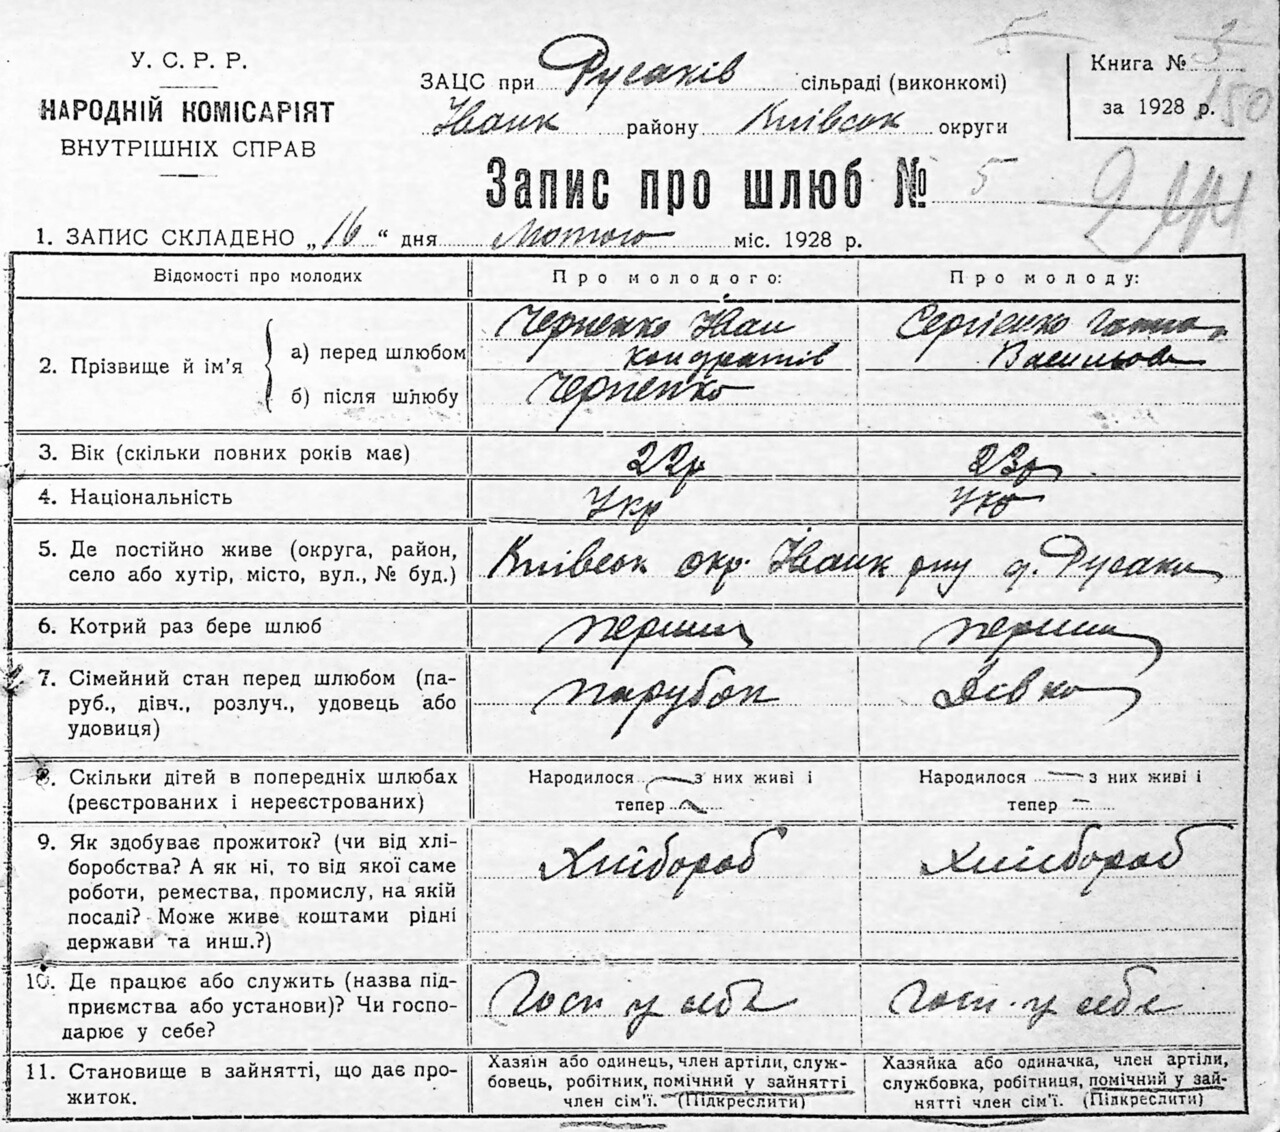 У. С. Р. Р.
НАРОДНІЙ КОМІСАРІЯТ
ВНУТРІШНІХ СПРАВ
ЗАЦС при Русаків сільраді (виконкомі)
Іванк району Київськ округи
Книга № 3
за 1928 р.
150
Запис про шлюб № 5
1. ЗАПИС СКЛАДЕНО „16“ дня Лютого міс. 1928 р.
Відомості про молодих
Про молодого:
Про молоду:
2. Прізвище й ім’я
а) перед шлюбом
Черненко Іван
Кондратів
Сергієнко Ганна
Васильова
б) після шлюбу
Черненко
3. Вік (скільки повних років має)
22р
23р
4. Національність
Укр
Укр
5. Де постійно живе (округа, район,
село або хутір, місто, вул., № буд.)
Київськ окр. Іванк рну д. Русаки
6. Котрий раз бере шлюб
перший
перший
7. Сімейний стан перед шлюбом (па-
руб., дівч., розлуч., удовець або
удовиця)
парубок
Дівка
8. Скільки дітей в попередніх шлюбах
(реєстрованих і нереєстрованих)
Народилося — з них живі і
тепер —
Народилося — з них живі і
тепер —
9. Як здобуває прожиток? (чи від хлі-
боробства? А як ні, то від якої саме
роботи, ремества, промислу, на якій
посаді? Може живе коштами рідні
держави та инш.?)
Хлібороб
Хлібороб
10. Де працює або служить (назва під-
приємства або установи)? Чи госпо-
дарює у себе?
Госп у себе
Госп. у себе
11. Становище в зайнятті, що дає про-
житок.
Хазяїн або одинець, член артіли, служ-
бовець, робітник, помічний у зайнятті
член сім’ї. (Підкреслити)
Хазяйка або одиначка, член артіли,
службовка, робітниця, помічний у зай-
нятті член сім’ї. (Підкреслити)